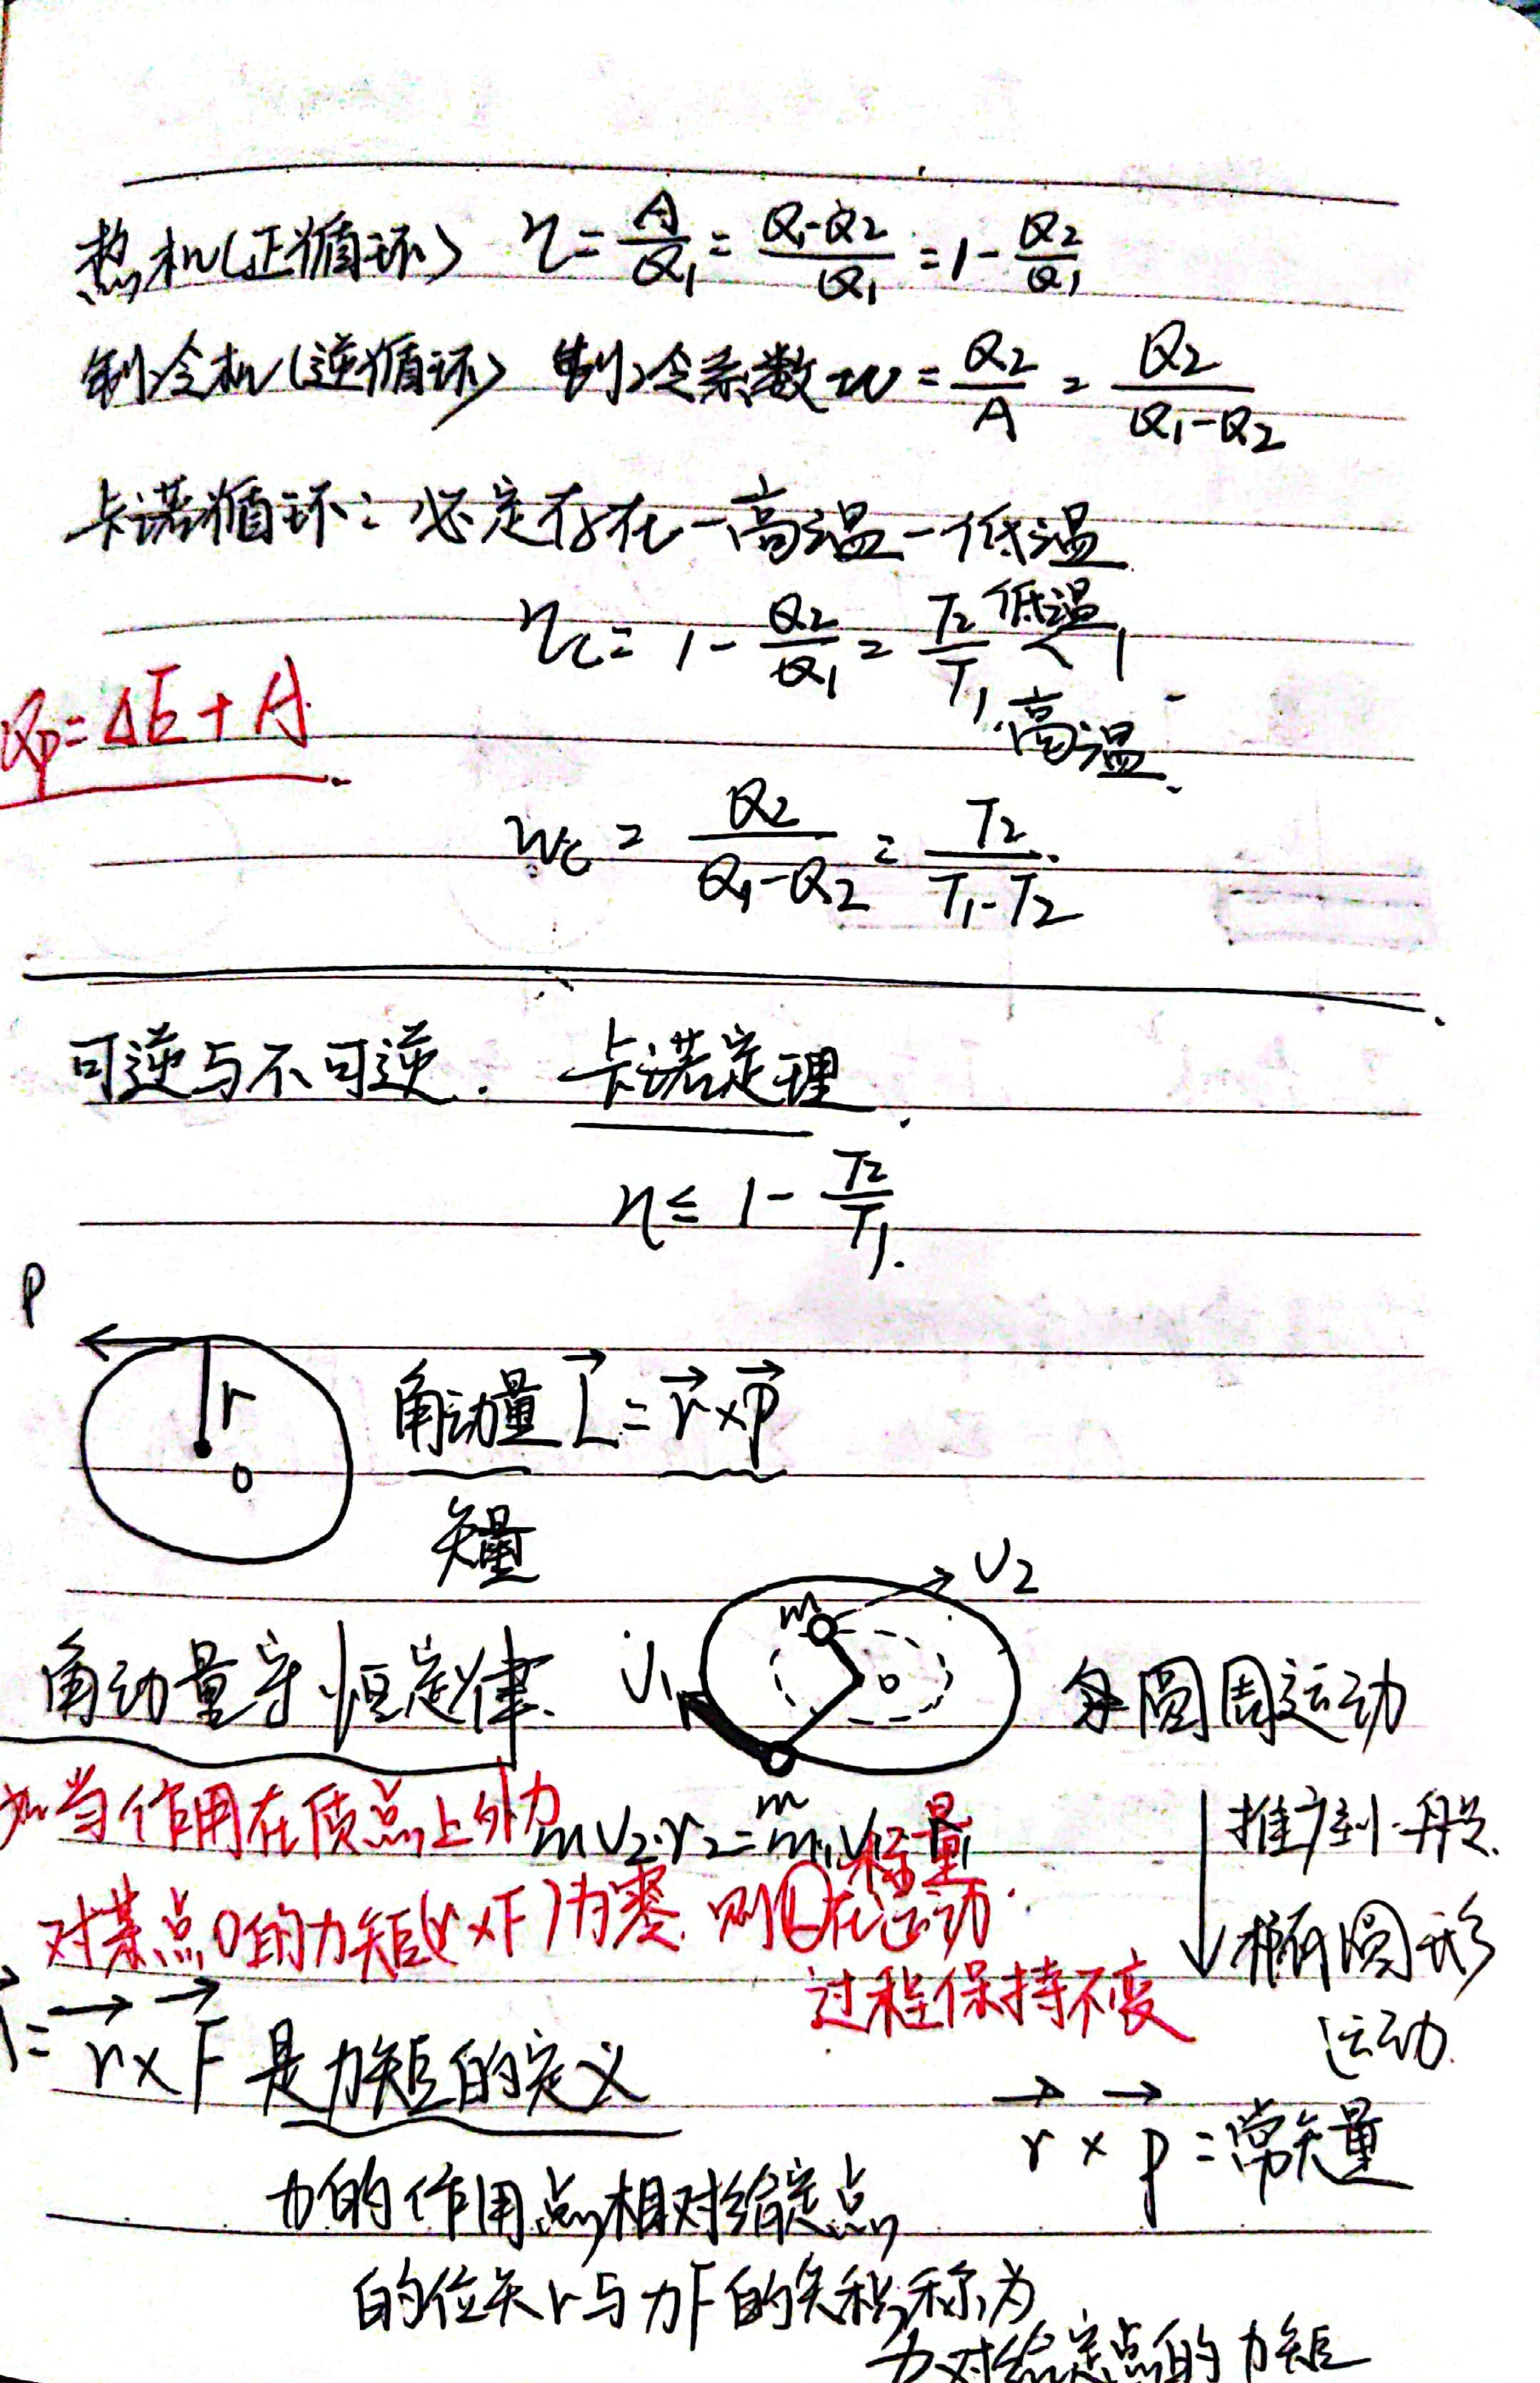 热机(正循环) η = A/Q1 = (Q1-Q2)/Q1 = 1 - Q2/Q1
制冷机(逆循环) 制冷系数 w = Q2/A = Q2/(Q1-Q2)
卡诺循环: 必定存在一高温一低温
ηc = 1 - Q2/Q1 = T2/T1 < 1
低温
高温
Qp = ΔE + A
wc = Q2/(Q1-Q2) = T2/(T1-T2)
可逆与不可逆. 卡诺定理.
η ≤ 1 - T2/T1.
P
r
o
角动量 L = r×P
矢量
υ2
m
υ1
o
m
角动量守恒定律.
圆周运动
当作用在质点上外力
mυ2·r2 =
标量
推广到一般.
对某点O的力矩(r×F)为零. 则L在运动
过程保持不变
椭圆形
运动.
= r×F 是力矩的定义
r × p = 常矢量
力的作用点相对给定点
的位矢r与力F的矢积称为
力对给定点的力矩